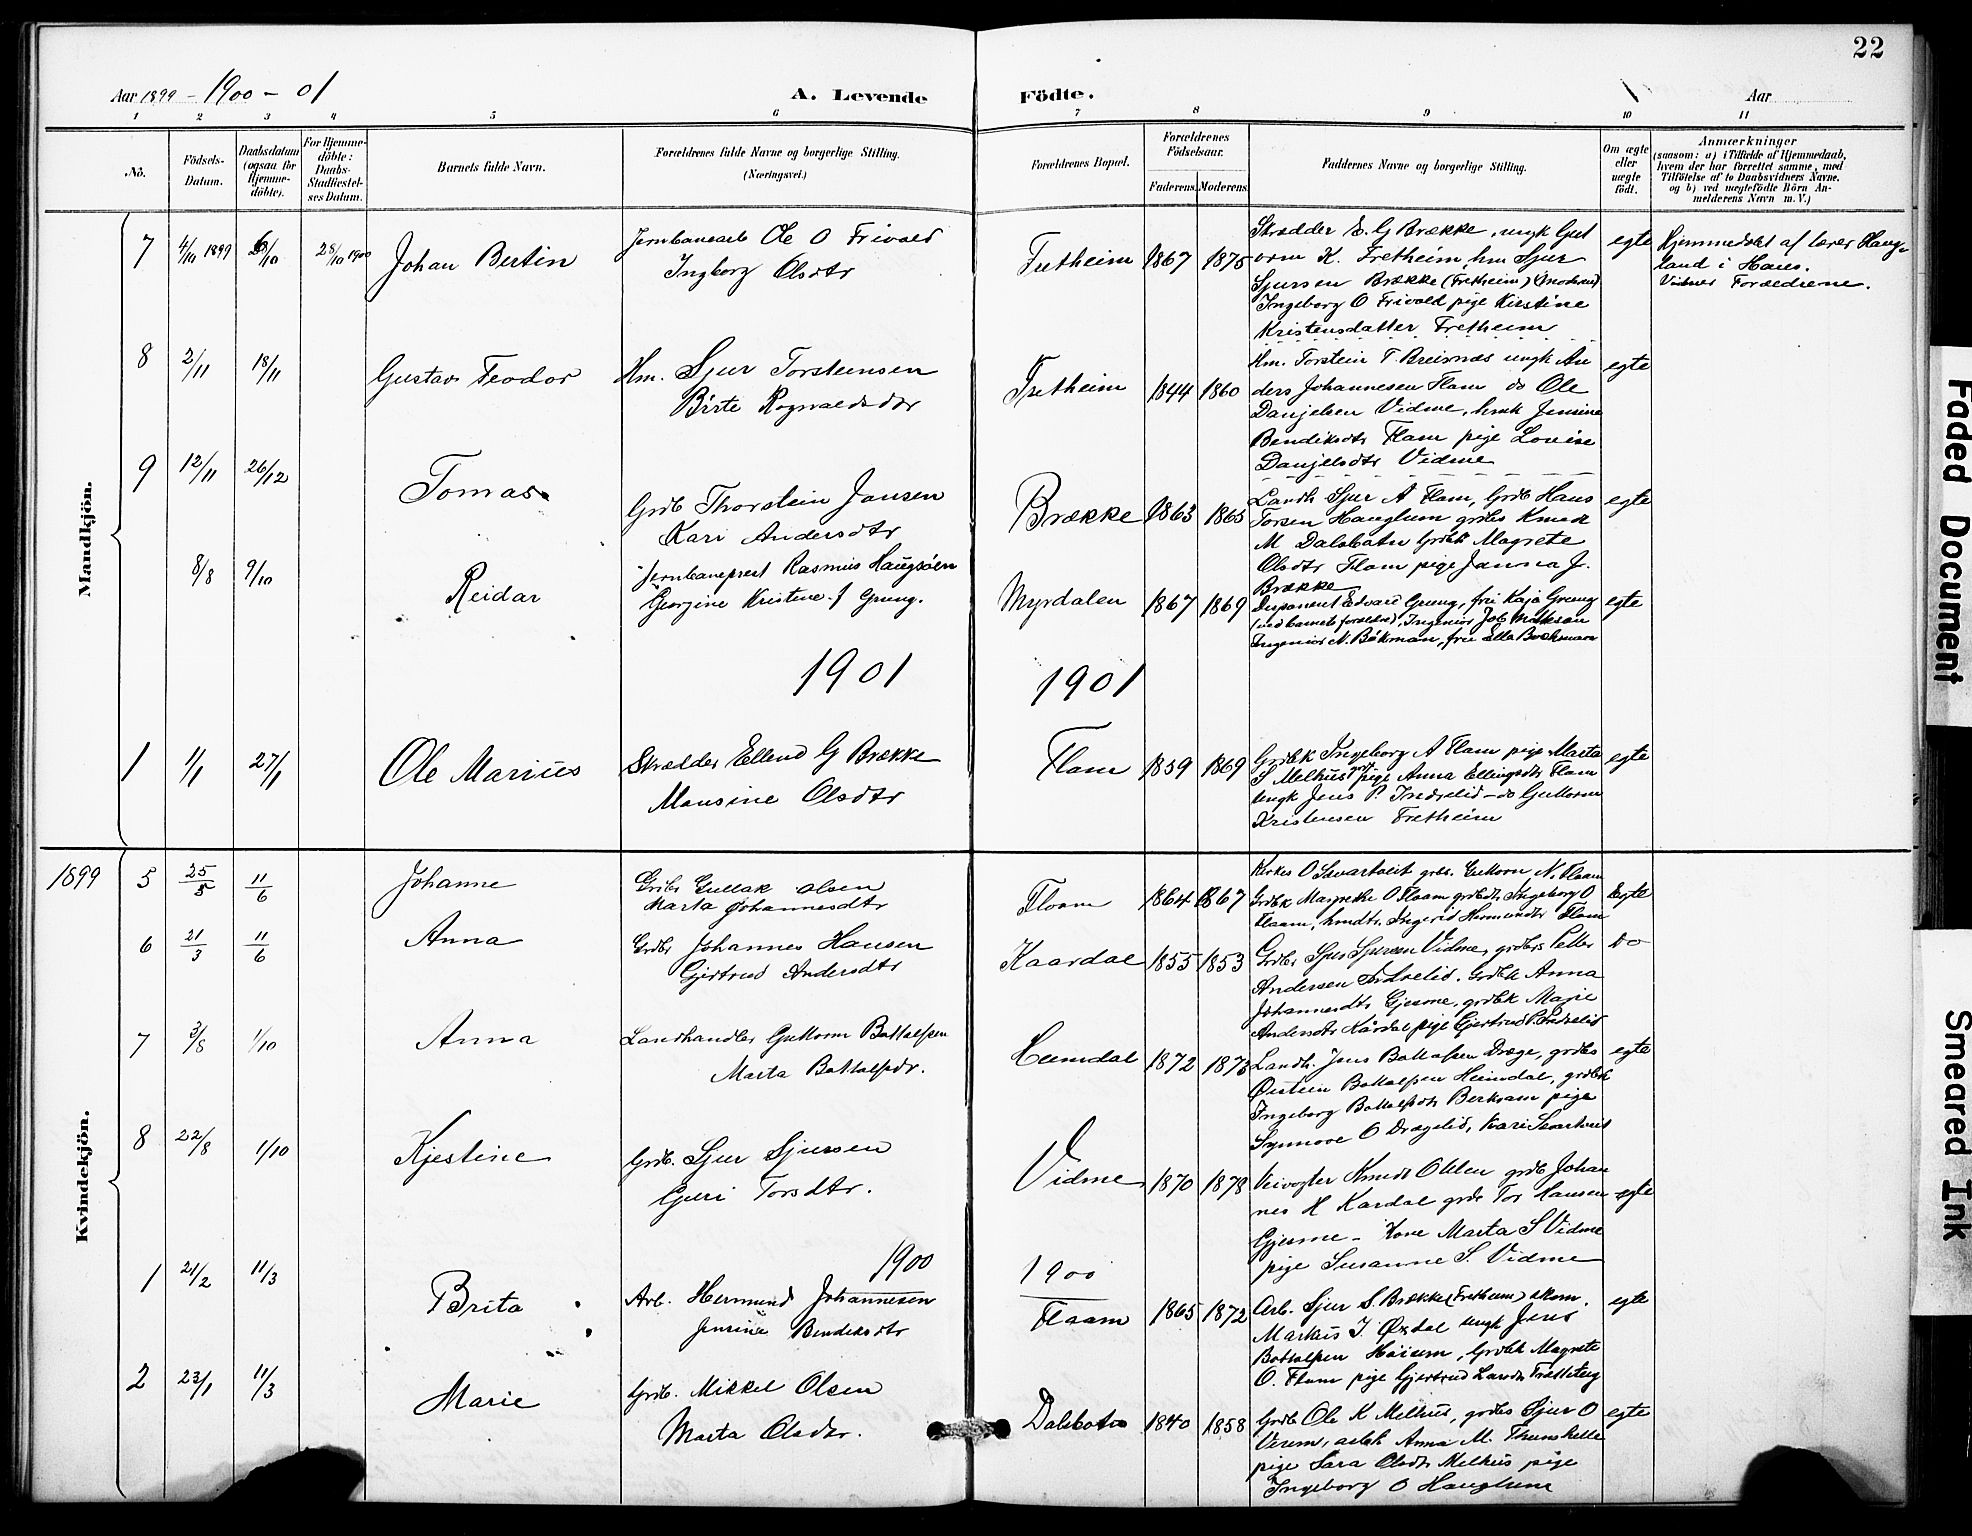 22
Aar 1899 - 1900 - 01
A. Levende
Födte.
Aar
1 2 3 4 5 6 7 8 9 10 11
No.
Födsels-
Datum.
Daabsdatum
(ogsaa for
Hjemme-
döbte).
For Hjemme-
döbte:
Daabs-
Stadfæstel-
ses Datum.
Barnets fulde Navn.
Forældrenes fulde Navne og borgerlige Stilling.
(Næringsvei.)
Forældrenes Bopæl.
Forældrenes
Födselsaar.
Faderens. Moderens.
Faddernes Navne og borgerlige Stilling.
Om ægte
eller
uægte
födt.
Anmærkninger
(saasom: a) i Tilfælde af Hjemmedaab,
hvem der har forrettet samme, med
Tilföielse af to Daabsvidners Navne.
og b) ved uægtefödte Börn An-
melderens Navn m. V.)
Mandkjön.
7 4/10 1899 28/10 1900 Johan Bertin
Jernbanearb Ole O Frivold
Ingborg Olsdtr
Fretheim 1867 1875
Skrædder E. G Brække, ungk Gut
orm K. Fretheim, hm Sjur
Sjursen Brække (Fretheim) (Moderen)
Ingeborg O Frivold pige Kirstine
Kristensdatter Fretheim
egte
Hjemmedøbt af lærer Haug-
land i Haus.
Vidner Forældrene.
8 2/11 18/11 Gustav Teodor
Hm. Sjur Torsteinsen
Birte Rognvaldsdtr
Fretheim 1844 1860
Hm. Torstein T. Breisnæs ungk An
ders Johannesen Flam do Ole
Danjelsen Vidme, hmk Jensine
Bendiksdtr Flam pige Lovise
Danjelsdtr Vidme
egte
9 12/11 26/12 Tomas
Grdb Thorstein Jansen
Kari Andersdtr
Brække 1863 1865
Landh. Sjur A Flam, Grdb Hans
Torsen Hauglum grdbr Knut
M Dalsbotn Grdbk Magrete
Olsdtr Flam pige Janna J.
Brække
egte
8/8 9/10 Reidar
Rasmus Haugsöen
Georgine Kristine f Grung.
Myrdalen 1867 1869
Disponent Edvard Grung, fru Kaja Grung
Ingeniør N. Bökman, fru Ella Bockman
egte
1901
1901
1 1/1 27/1 Ole Marius
Skrædder Ellend G Brække
Monsine Olsdtr
Flam 1859 1869
Grdbk Ingeborg A Flam pige Marta
S Melhus pige Anna Ellingsdtr Flam
ungk Jens P. Indrelid - do Guttorm
Kristensen Fretheim
egte
Kvindekjön.
1899 5 25/5 11/6 Johanne
Grdbr Gullak Olsen
Marta Johannesdtr
Flaam 1864 1867
Guttorm N. Flaam
Grdbk Magrethe O Flaam grdbdtr Ingeborg O
Flaam, hmdtr. Ingerid Hermundtr Flam
Egte
6 21/3 11/6 Anna
Grdbr Johannes Hansen
Gjertrud Andersdtr
Kaardal 1855 1853
Grdbr Sjur Sjursen Vidme, grdbrs Petter
Andersen Indrelid. Grdbk Anna
Johannesdtr Gjesme, grdbk Marie
Andersdtr Kårdal pige Gjertrud P. Indrelid
Do
7 3/8 1/10 Anna
Landhandler Guttorm Bottolfsen
Marta Bottolfsdr.
Heimdal 1872 1873
Landh. Jens Bottolfsen Dræge, grdbr
Øistein Bottolfsen Heimdal, grdbk
Ingeborg Bottolfsdtr Berkvam pige
Synnøve O Drægelid, Kari
egte
8 22/8 1/10 Kjestine
Grdb. Sjur Sjursen
Guri Torsdtr.
Vidme 1870 1878
Veivogter Knud Ohlen grdb Johan
nes H Kardal grdr Tor Hansen
Gjesme - Kone Marta S Vidme
pige Susanne S. Vidme
egte
1900
1900
1 21/2 11/3 Brita
Arb. Hermund Johannesen
Jensine Bendiksdtr
Flaam 1865 1872
Arb. Sjur S. Brække (Fretheim) skom.
Markus J. Øxdal ungk Jens
Bottolfsen Høium, Grdbk Magrete
O. Flam pige Gjertrud Larsdtr
egte
2 23/1 11/3 Marie
Grdb. Mikkel Olsen
Marta Olsdtr.
Dalsbotn 1840 1858
Grdb Ole K Melhus, grdbs Sjur O
Anna M. Thunshelle
pige Sara Olsdtr Melhus pige
Ingeborg O Hauglum
egte
Faded Document
Smeared Ink